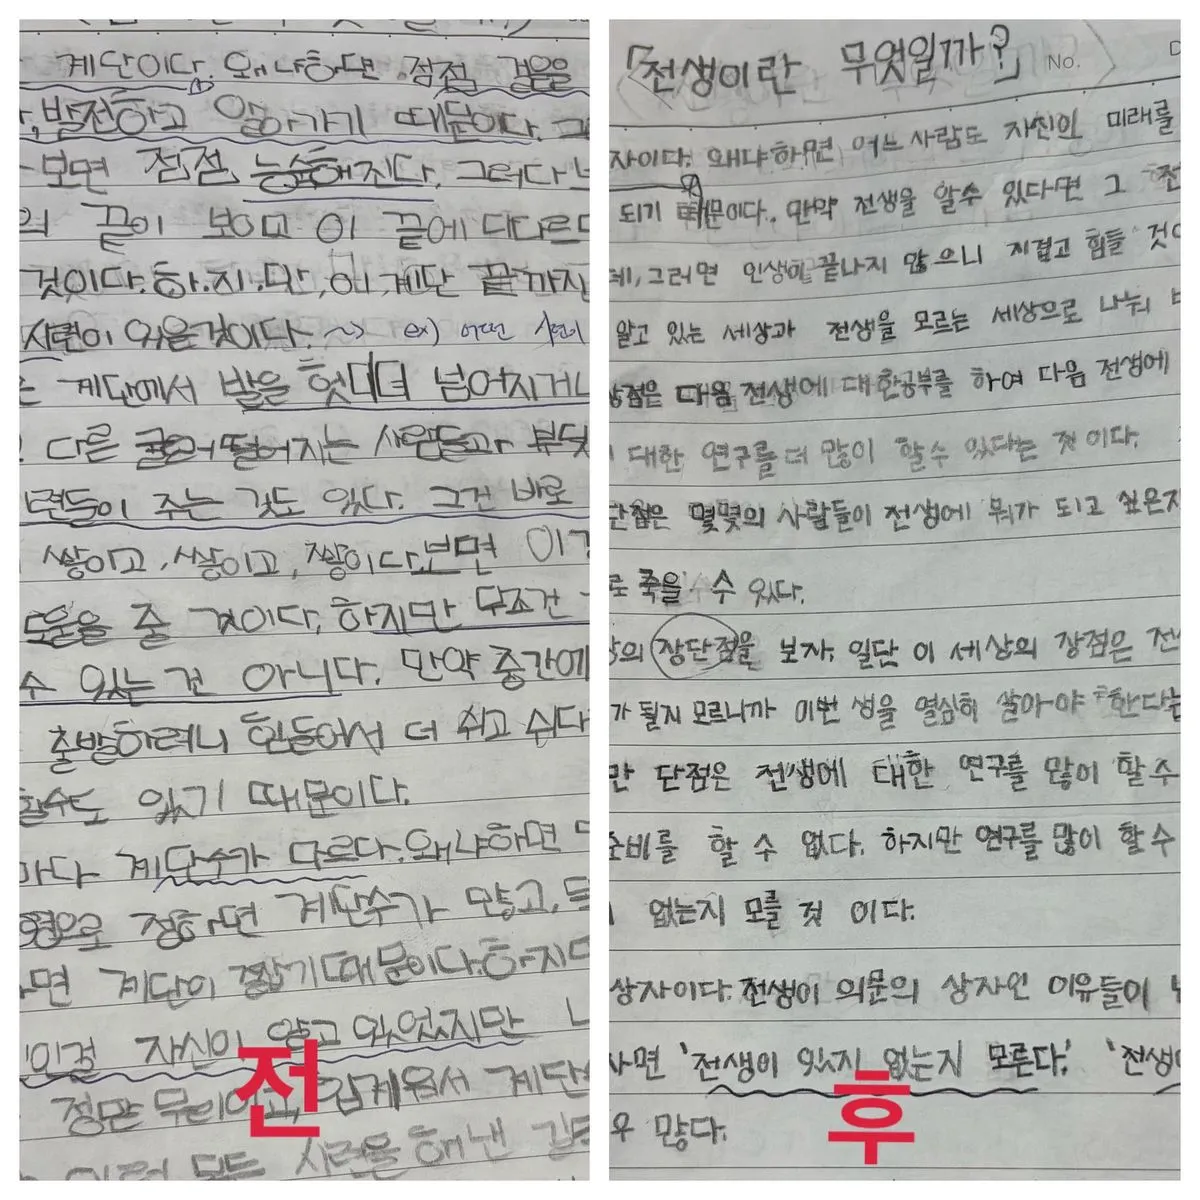 계단이다. 왜냐하면 점점 걸음을
발전하고 알아가기 때문이다. 그
보면 점점 능숙해진다. 그러다 보
끝이 보이고 이 끝에 다다르
것이다. 하.지.만, 이 계단 끝까지
시련이 있을것이다. ~> ex) 어떤 시련이
계단에서 발을 헛디뎌 넘어지거나
다른 굴러떨어지는 사람들과 부딪
련들이 주는 것도 있다. 그건 바로
쌓이고, 쌓이고, 쌓이다보면 이
도움을 줄 것이다. 하지만 무조건
수 있는 건 아니다. 만약 중간에
출발하려니 힘들어서 더 쉬고 쉬다
할수도 있기 때문이다.
마다 계단수가 다르다. 왜냐하면
형으로 정하면 계단수가 많고,
면 계단이 짧기때문이다. 하지만
이걸 자신이 알고 있었지만
계단
시련을 해낸
전
「전생이란 무엇일까?」 No.
자이다. 왜냐하면 어느 사람도 자신의 미래를
되기 때문이다. 만약 전생을 알수 있다면 그 "전
데, 그러면 인생이 끝나지 않으니 지겹고 힘들 것
알고 있는 세상과 전생을 모르는 세상으로 나눠
장점은 다음 전생에 대한공부를 하여 다음 전생에
대한 연구를 더 많이 할수 있다는 것 이다.
단점은 몇몇의 사람들이 전생에 뭐가 되고 싶은지
로 죽을 수 있다.
상의 장단점을 보자. 일단 이 세상의 장점은 전
가 될지 모르니까 이번 생을 열심히 살아야 한다는
만 단점은 전생에 대한 연구를 많이 할수
준비를 할 수 없다. 하지만 연구를 많이 할수
없는지 모를 것 이다.
상자이다. 전생이 의문의 상자인 이유들이
하면 '전생이 있지 없는지 모른다.' '전생
우 많다.
후